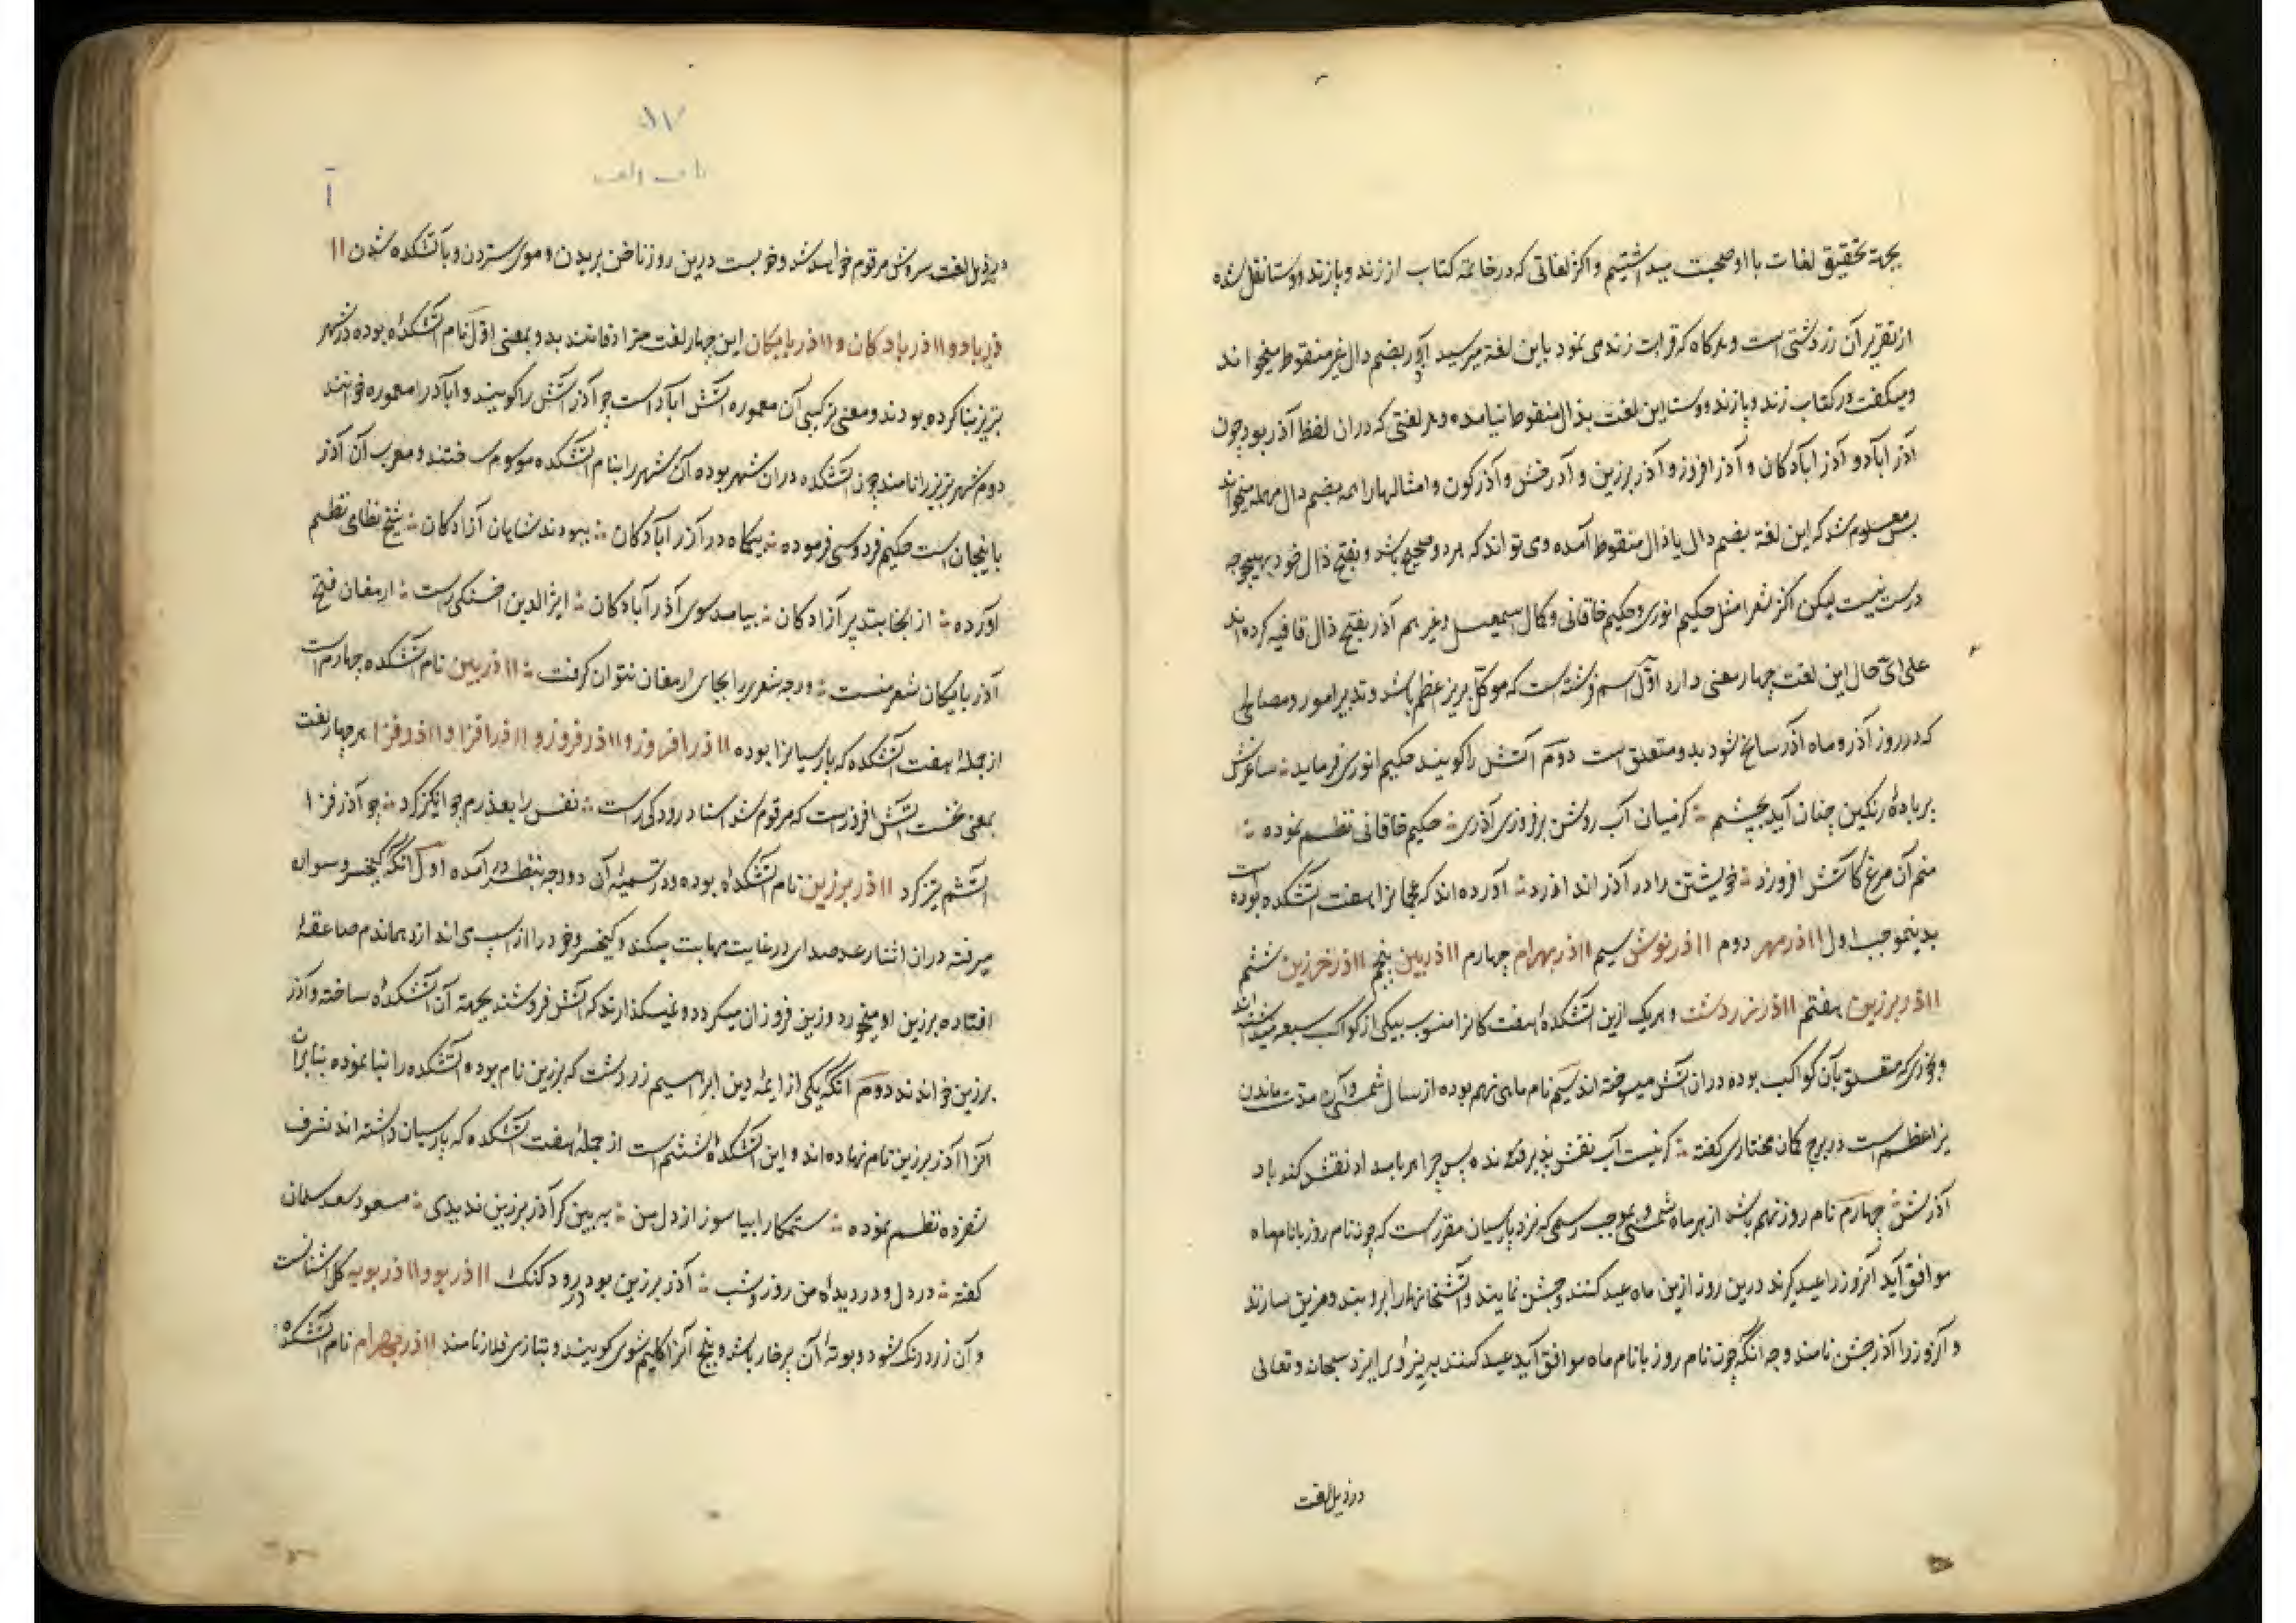 بجهة تحقیق لغات با او صحبت میداشتیم و اکثر لغاتی که در خاتمه کتاب از زند و پازند و وستا نقل شده
از تقریر آن زردشتی است و هرکاه که قراءت زند می نمود باین لغة میرسید آدر بضم دال غیر منقوط میخواند
و میکفت در کتاب زند و پازند و وستا این لغت بذال منقوط نیامده و هر لغتی که دران لفظ آذر بود چون
آذر آباد و آذر آبادکان و آذر افروز و آذر برزین و آذرخش و آذرکون و امثالها را همه بضم دال مهمله میخواند
پس معلوم شد که این لغة بضم دال یا ذال منقوط آمده و می تواند که هر دو صحیح باشد و بفتح ذال خود بهیچوجه
درست نیست لیکن اکثر شعرا مثل حکیم انوری و حکیم خاقانی و کمال اسمعیل و غیرهم آذر بفتح ذال قافیه کرده اند
علی ایّ حال این لغت چهار معنی دارد اوّل اسم فرشته است که موکّل بر نیر اعظم باشد و تدبیر امور و مصالحی
که در روز آذر و ماه آذر سانح شود بدو متعلق است دوّم آتش را کویند حکیم انوری فرماید ساغرش
بر بادهٔ رنکین چنان آید بچشم کز میان آب روشن بر فروزی آذری حکیم خاقانی نظم نموده
منم آن مرغ کاتش افروزد خویشتن را در آذر اندازد آورده اند که عجما نرا هفت آتشکده بوده است
بدینموجب اول ااذر مهر دوم ااذر نوش سیم ااذر بهرام چهارم ااذر بین پنجم ااذر خرزین ششم
ااذر برزین هفتم ااذر زردشت و هریک ازین آتشکدهٔ هفت کانه را منسوب بیکی از کواکب سبعه میداشته اند
و بخوری که متعلق بآن کواکب بوده دران آتش میسوخته اند سیّم نام ماه نهم بوده از سال شمسی و آن مدت ماندن
نیر اعظم است در برج کمان مختاری کفته کر نیست آب نقش پذیرنده پس چرا هر بامداد نقش کند باد
آذرش چهارم نام روز نهم باشد از هر ماه شمسی و بموجب رسمی که نزد پارسیان مقرر است که چون نام روز با نام ماه
موافق آید آنروز را عید کیرند درین روز ازین ماه عید کنند و جشن نمایند و آتشخانها را بروبند و مزین سازند
و آنروز را آذر جشن نامند و جه آنکه چون نام روز با نام ماه موافق آید عید کنند به نیروی ایزد سبحانه و تعالی
در ذیل لغت
آ
در ذیل لغت سروش مرقوم خواهد شد و خوبست درین روز ناخن بریدن و موی ستردن و بآتشکده شدن اا
ذرباد و ااذربادکان و ااذربایکان این چهار لغت مترادفاتند بدو معنی اوّل نام آتشکدهٔ بوده در شهر
تبریز بنا کرده بودند و معنی ترکیبی آن معموره آتش آباد است چو آذر آتش را کویند و آباد را معموره خوانند
دوم شهر تبریز را نامند چون آتشکده دران شهر بوده آن شهر را بنام آتشکده موسوم ساختند و معرب آن آذر
بایجان است حکیم فردوسی فرموده بیکماه در آذر آبادکان ببودند شاهان آزادکان شیخ نظامی نظم
آورده از آنجا بتدبیر آزادکان بیامد سوی آذر آبادکان اثیر الدین اخسیکتی راست ارمغان فتح
آذربایکان شعر منست ورچه شعری را بجای ارمغان نتوان کرفت ااذر بین نام آتشکده چهارم است
از جملهٔ هفت آتشکده که پارسیانرا بوده ااذر افروز و ااذر فروز و ااذر افزا و ااذر فزا هر چهار لغت
بمعنی نخست آتش افروز است که مرقوم شد استاد رودکی راست نفس را بعذرم چو انکیز کرد چو آذر فزا
آتشم تیز کرد ااذر برزین نام آتشکده بوده و در تسمیهٔ آن دو وجه بنظر در آمده اوّل آنکه کیخسرو سواره
میرفته دران اثنا رعد صدای در غایت مهابت میکند و کیخسرو خود را از اسپ می اندازد هماندم صاعقهٔ
افتاده بر زین او میخورد و زین فروزان میکردد و نمیکذارند که آتش فرو نشیند بجهة آن آتشکدهٔ ساخته و آذر
برزین خواندند دوم آنکه یکی از ایمهٔ دین ابراهیم زردشت که برزین نام بوده آتشکده را بنا نموده بنا بران
آنرا آذر برزین نام نهاده اند و این آتشکدهٔ ششم است از جملهٔ هفت آتشکده که پارسیان داشته اند شرف
شفروه نظم نموده ستمکارا بیا سوز از دل من ببین کر آذر برزین ندیدی مسعود سعد سلمان
کفته در دل و در دیدهٔ من روز و شب آذر برزین بود و رود کنک ااذر بو و ااذر بویه کل اشنانست
و آن زرد رنک شود و بوتهٔ آن پرخار باشد و بیخ آنرا کلیم شوی کویند و بتازی قلار نامند ااذر بهرام نام آتشکده